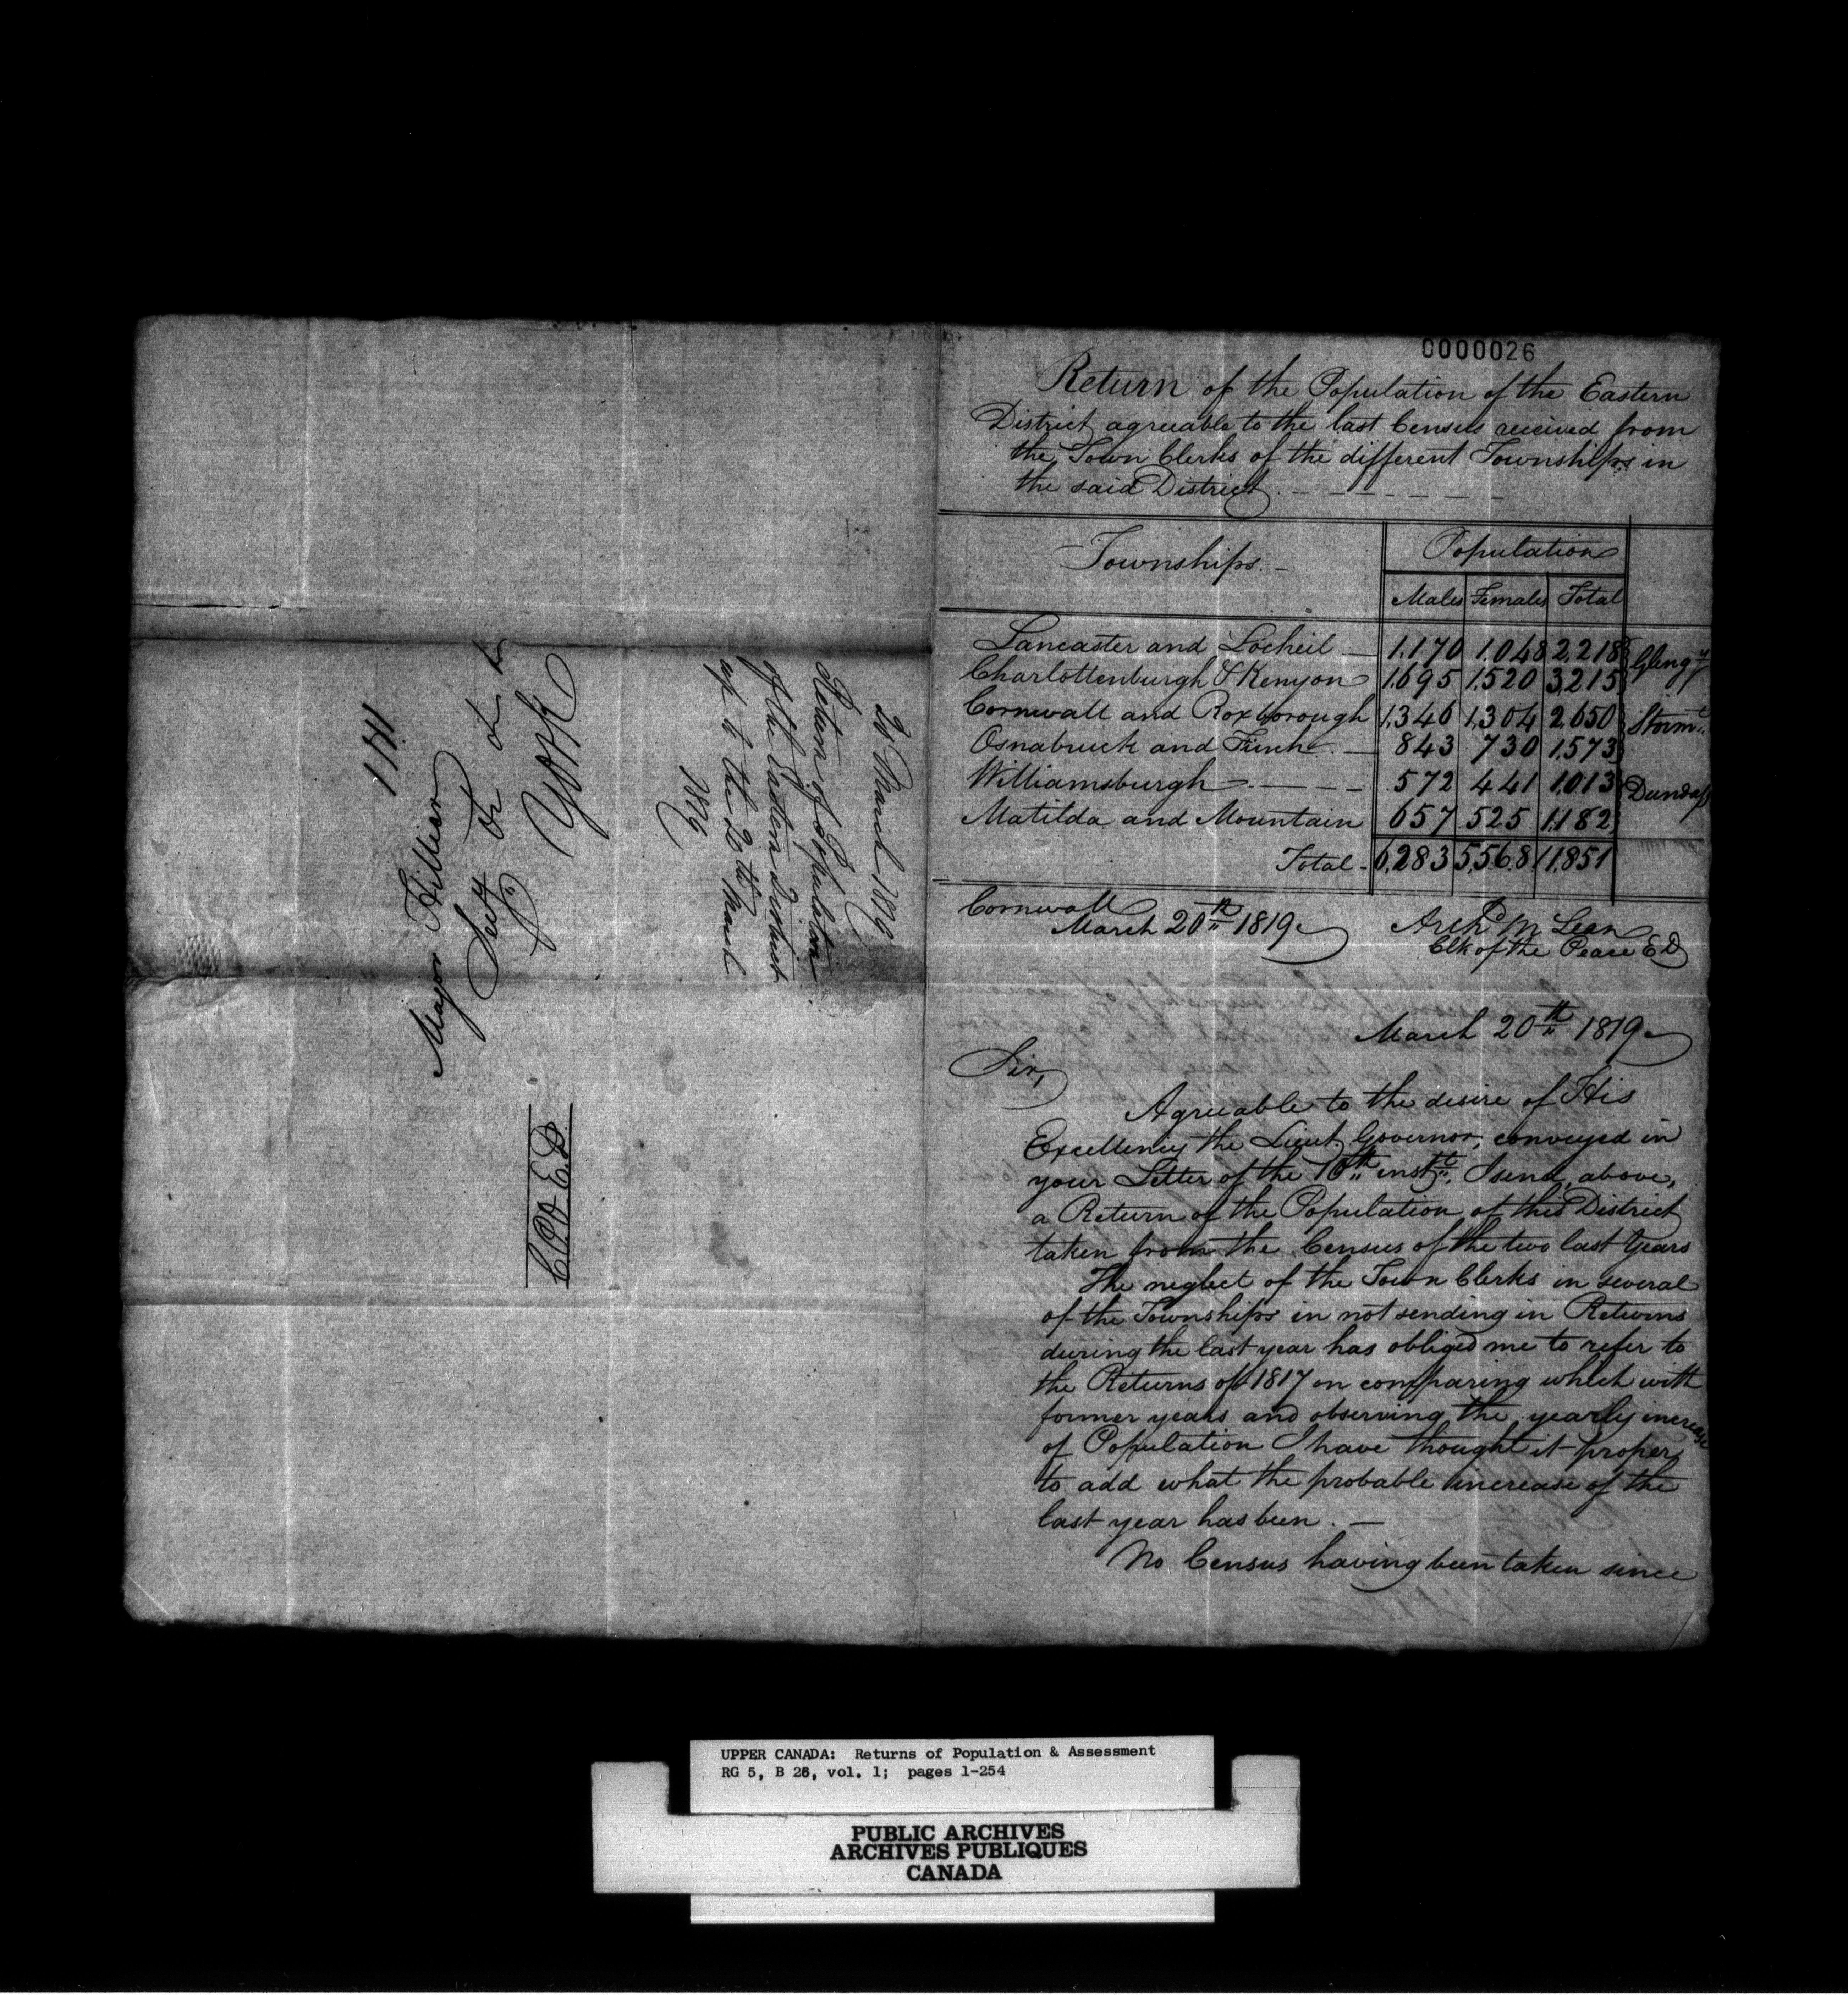 0000026
Return of the Population of the Eastern
District agreeable to the last Census received from
the Town Clerks of the different Townships in
the said District
Townships.
Population
Males Females Total
Lancaster and Locheil 1,170 1,048 2,218
Glengy
Charlottenburgh & Kenyon 1,695 1,520 3,215
Cornwall and Roxborough 1,346 1,304 2,650
Stormt
Osnabruck and Finch 843 730 1,573
Williamsburgh 572 441 1,013
Dundas
Matilda and Mountain 657 525 1,182
Total 6,283 5,568 11,851
Cornwall
March 20th 1819
Archd McLean
Clk of the Peace E D
March 20th 1819
Sir,
Agreeable to the desire of His
Excellency the Lieut. Governor, conveyed in
your Letter of the 10th instt, I send, above,
a Return of the Population of this District
taken from the Census of the two last Years
The neglect of the Town Clerks in several
of the Townships in not sending in Returns
during the last year has obliged me to refer to
the Returns of 1817 on comparing which with
former years and observing the yearly increase
of Population I have thought it proper
to add what the probable increase of the
last year has been. —
No Census having been taken since
20 March 1819
Return of Population
of the Eastern District
up to the 20th March
1819
Major Hillier
Secy &c &c &c
York
C.O.P. E.D.
UPPER CANADA: Returns of Population & Assessment
RG 5, B 26, vol. 1; pages 1-254
PUBLIC ARCHIVES
ARCHIVES PUBLIQUES
CANADA